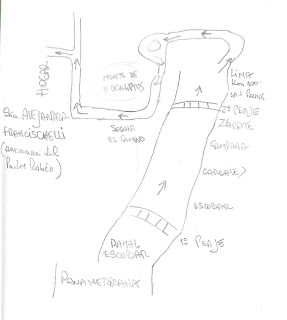 HOGAR
MONTE DE
EUCALIPTUS
LIMA
Km 100
SEGUIR
EL CAMINO
Sra ALEJANDRA
FRANCISCHELLI
(hermana del
Padre Rubén)
2º PEAJE
ZARATE
CAMPANA
CARDALES
ESCOBAR
1º PEAJE
RAMAL
ESCOBAR
PANAMERICANA